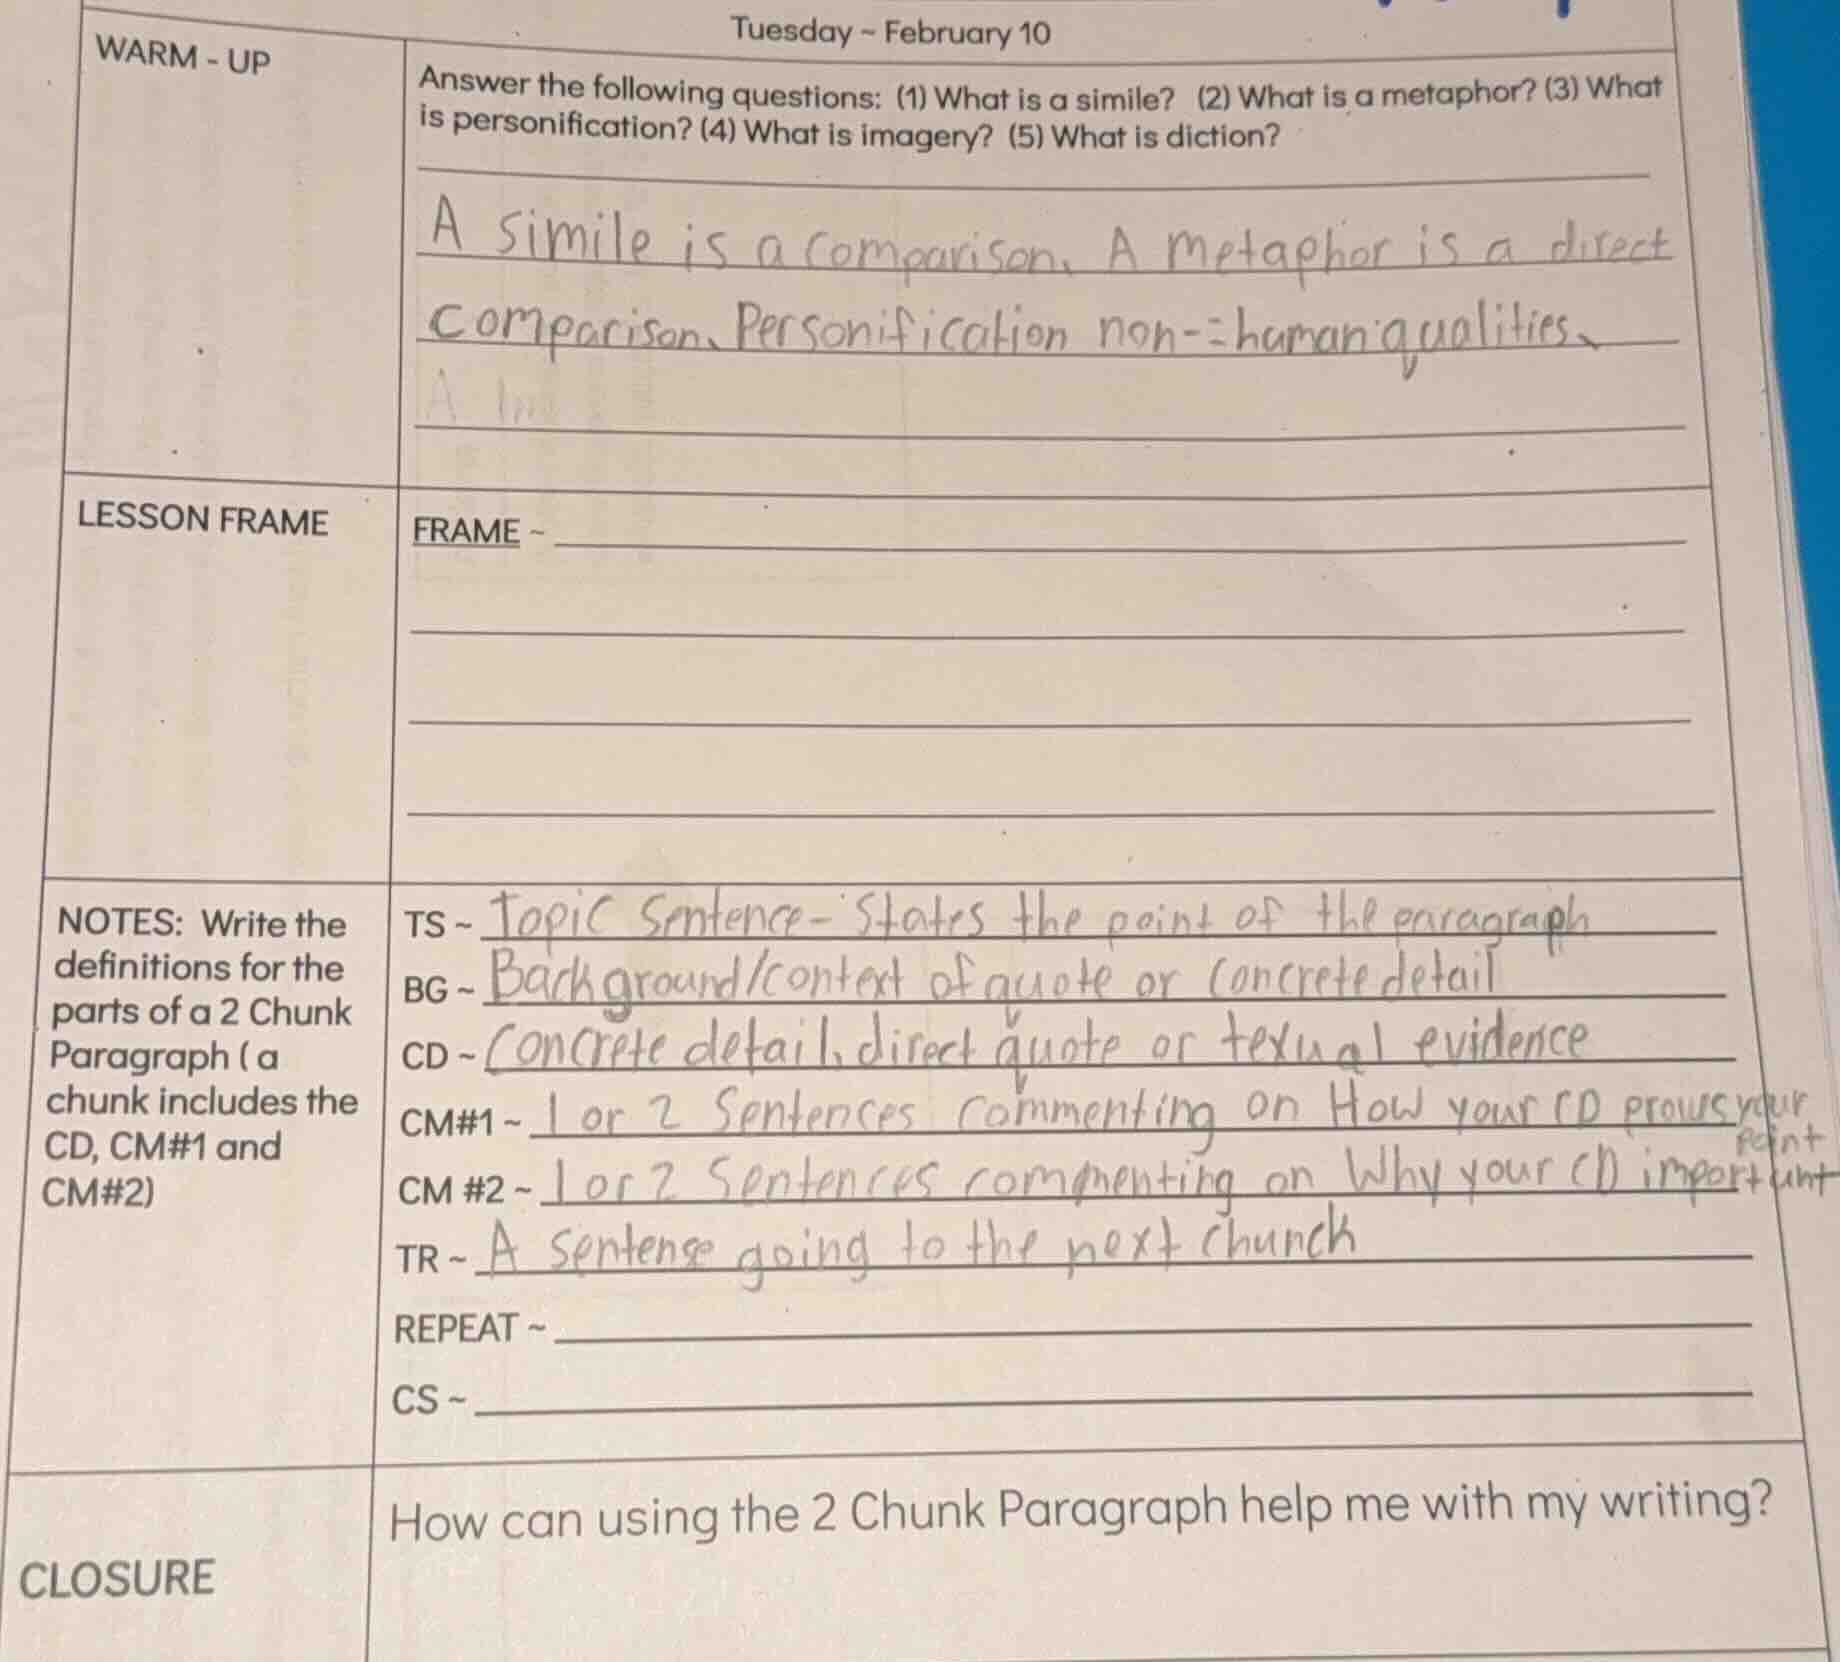 Tuesday ~ February 10
WARM - UP
Answer the following questions: (1) What is a simile? (2) What is a metaphor? (3) What
is personification? (4) What is imagery? (5) What is diction?
A simile is a comparison. A metaphor is a direct
comparison. Personification non-=human qualities.
A Im
LESSON FRAME
FRAME ~
NOTES: Write the
definitions for the
parts of a 2 Chunk
Paragraph ( a
chunk includes the
CD, CM#1 and
CM#2)
TS ~ Topic Sentence - States the point of the paragraph
BG ~ Background/context of quote or concrete detail
CD ~ Concrete detail, direct quote or texual evidence
CM#1 ~ 1 or 2 Sentences commenting on How your CD proves your
point
CM #2 ~ 1 or 2 Sentences commenting on Why your CD important
TR ~ A sentense going to the next chunck
REPEAT ~
CS ~
CLOSURE
How can using the 2 Chunk Paragraph help me with my writing?